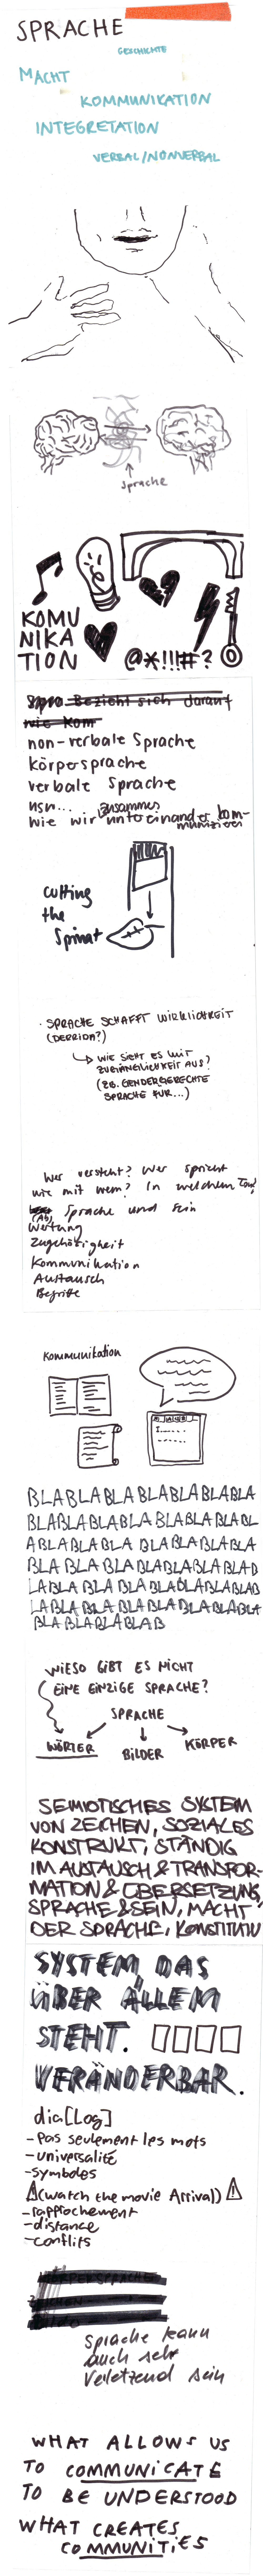 SPRACHE
GESCHICHTE
MACHT
KOMMUNIKATION
INTEGRETATION
VERBAL/NONVERBAL
Sprache
KOMU
NIKA
TION
@*!!!#?
Spra Bezieht sich darauf
wie Kom
non-verbale Sprache
körpersprache
verbale Sprache
usw... zusammen
wie wir untereinander kom-
munizieren
cutting
the
Spinat
· SPRACHE SCHAFFT WIRKLICHKEIT
(DERRIDA?)
WIE SIEHT ES MIT
ZUGÄNGLICHKEIT AUS?
(ZB. GENDERGERECHTE
SPRACHE FÜR...)
Wer versteht? Wer spricht
wie mit wem? In welchem Ton?
Sprache und Sein
Wertung
Zugehörigkeit
Kommunikation
Austausch
Begriffe
Kommunikation
BLABLABLABLABLABLABLA
BLABLABLABLABLABLABLABL
ABLABLABLA BLABLABLABLA
BLA BLABLABLABLABLABLAB
LABLA BLA BLABLABLABLABLAB
LABLABLABLABLABLABLABLA
BLA BLABLABLAB
WIESO GIBT ES NICHT
EINE EINZIGE SPRACHE?
SPRACHE
WÖRTER
BILDER
KÖRPER
SEMIOTISCHES SYSTEM
VON ZEICHEN, SOZIALES
KONSTRUKT, STÄNDIG
IM AUSTAUSCH & TRANSFOR-
MATION & ÜBERSETZUNG,
SPRACHE & SEIN, MACHT
DER SPRACHE,
SYSTEM, DAS
ÜBER ALLEM
STEHT.
VERÄNDERBAR.
dia[Log]
- Pas seulement les mots
- universalité
- symboles
(watch the movie Arrival)
- rapprochement
- distance
- conflits
KÖRPERSPRACHE
ZEICHEN
Sprache kann
auch sehr
verletzend sein
WHAT ALLOWS US
TO COMMUNICATE
TO BE UNDERSTOOD
WHAT CREATES
COMMUNITIES